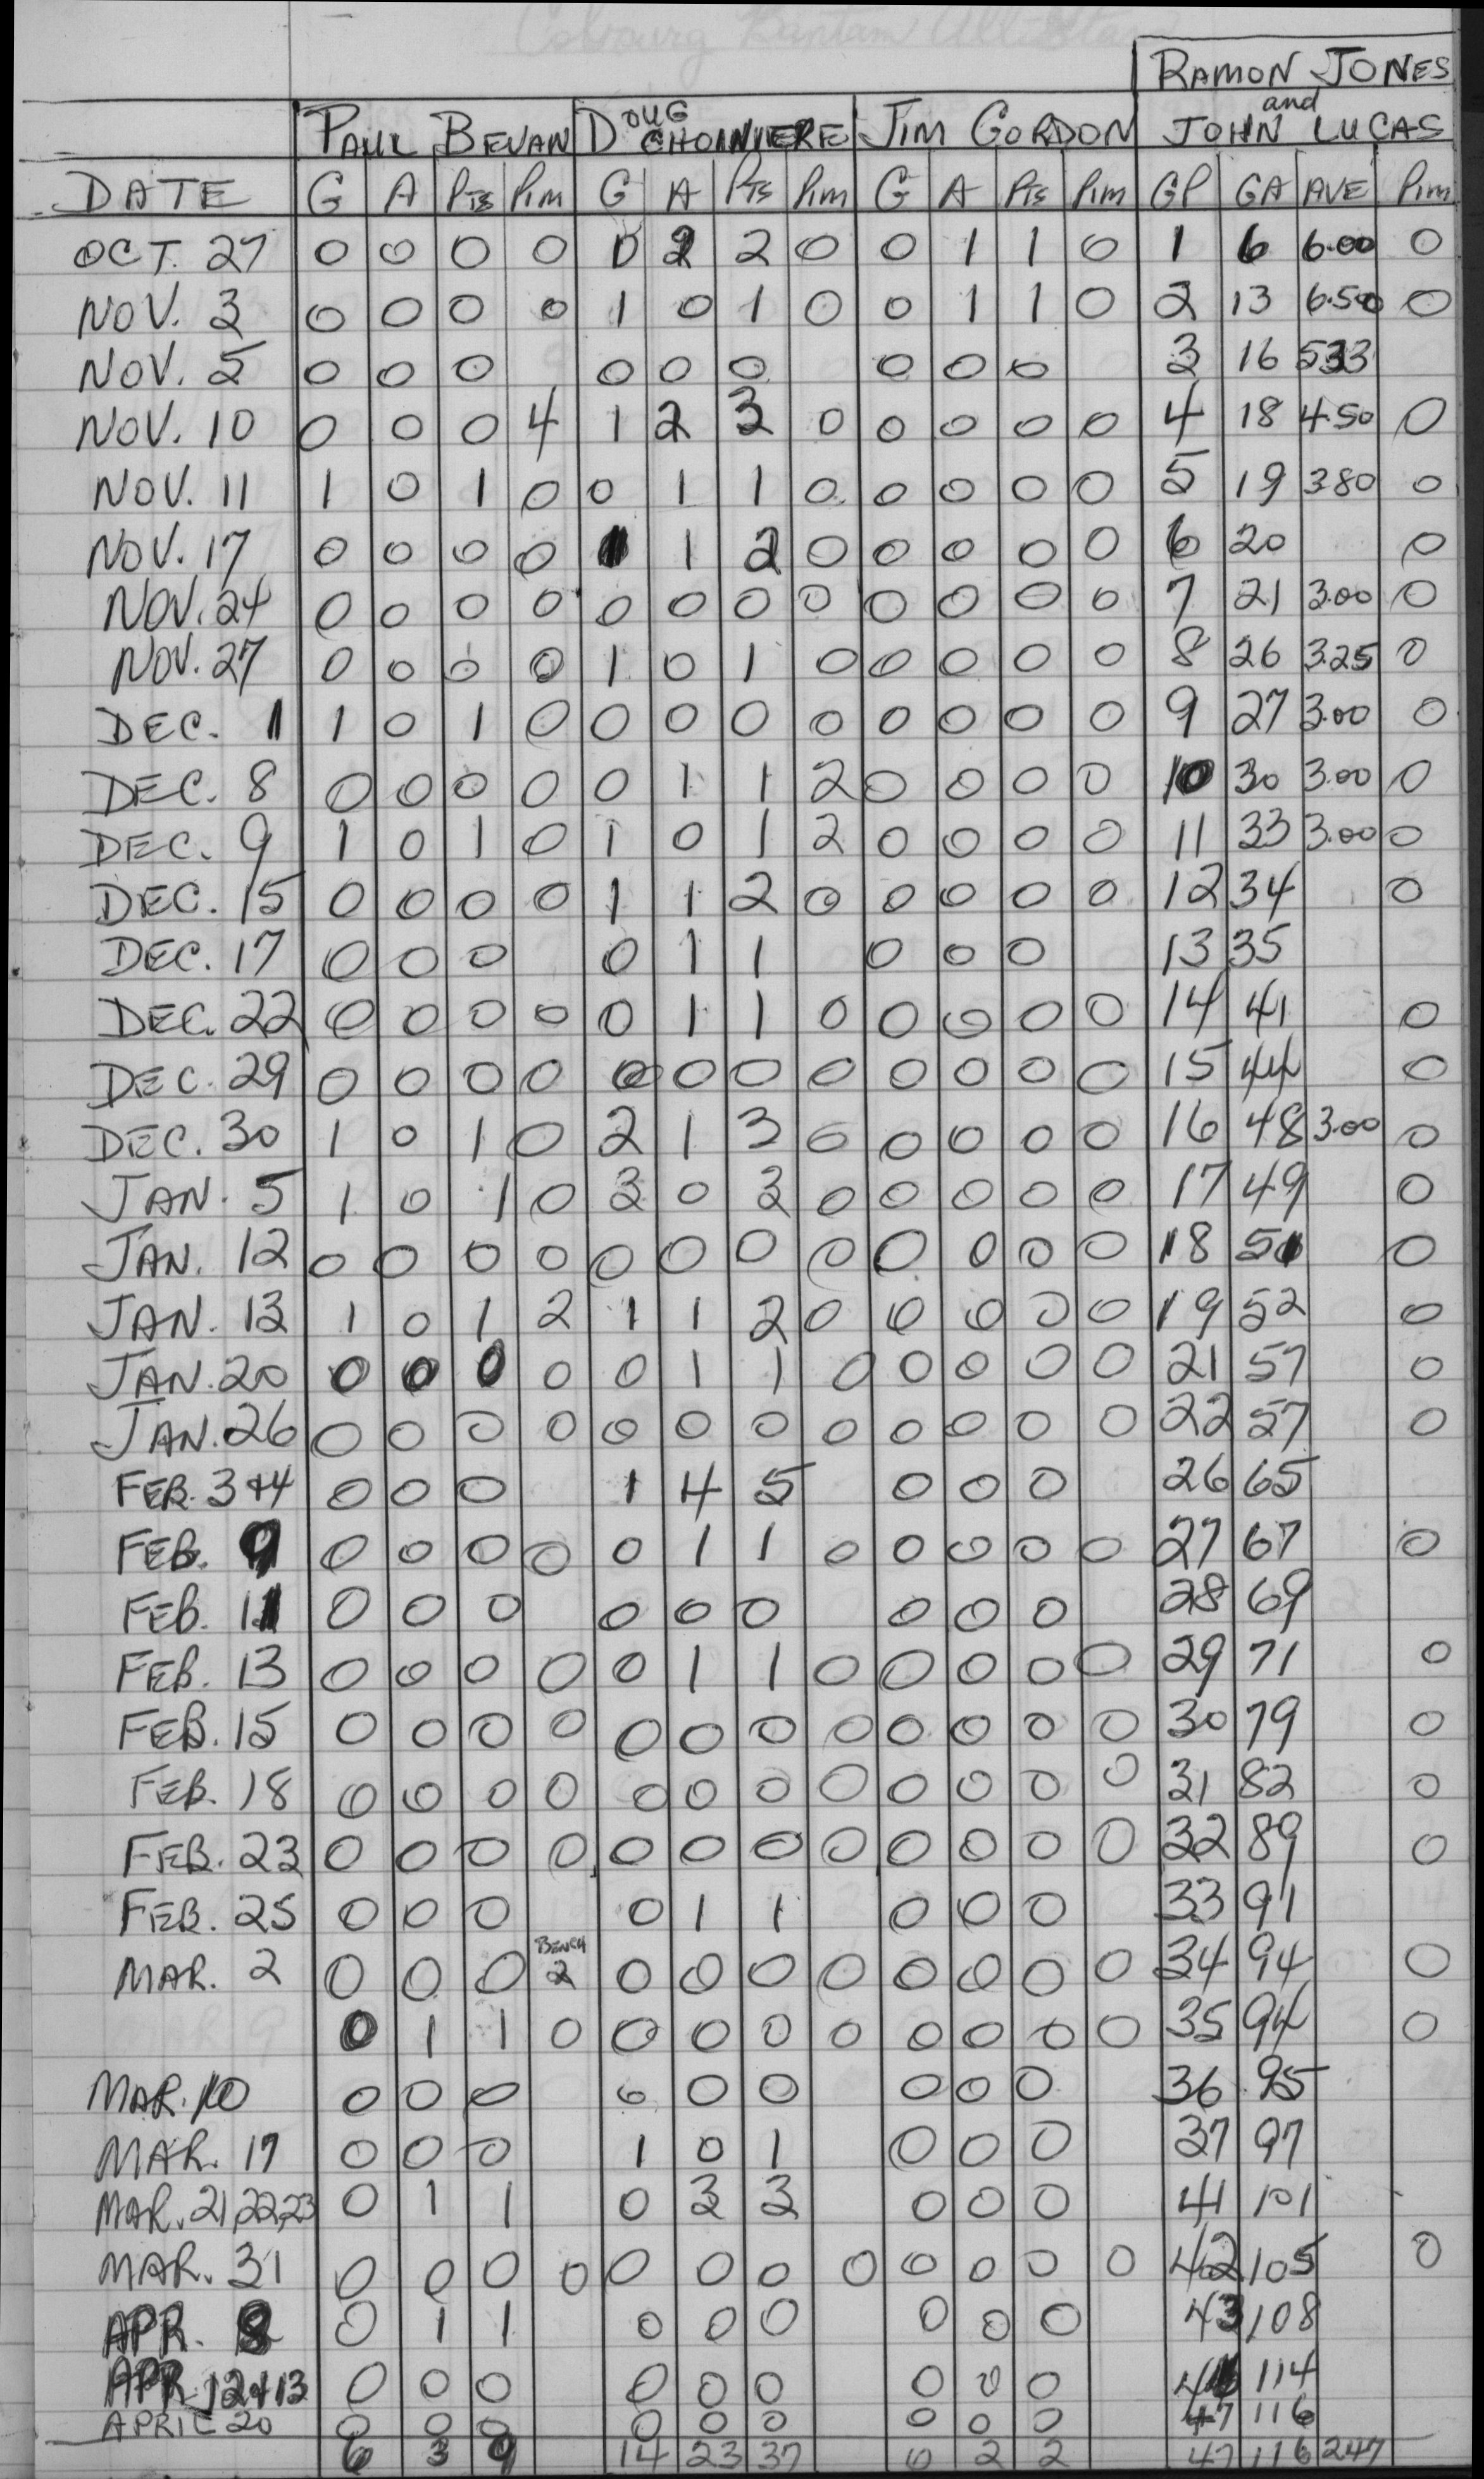 Cobourg Bantam All Stars
RAMON JONES
and
PAUL BEVAN DOUG CHOINIERE JIM GORDON JOHN LUCAS
DATE G A Pts Pim G A Pts Pim G A Pts Pim GP GA AVE Pim
OCT. 27 0 0 0 0 0 2 2 0 0 1 1 0 1 6 6.00 0
NOV. 3 0 0 0 0 1 0 1 0 0 1 1 0 2 13 6.50 0
NOV. 5 0 0 0 0 0 0 0 0 0 3 16 533
NOV. 10 0 0 0 4 1 2 3 0 0 0 0 0 4 18 4.50 0
NOV. 11 1 0 1 0 0 1 1 0 0 0 0 0 5 19 380 0
NOV. 17 0 0 0 0 1 1 2 0 0 0 0 0 6 20 0
NOV. 24 0 0 0 0 0 0 0 0 0 0 0 0 7 21 3.00 0
NOV. 27 0 0 0 0 1 0 1 0 0 0 0 0 8 26 3.25 0
DEC. 1 1 0 1 0 0 0 0 0 0 0 0 0 9 27 3.00 0
DEC. 8 0 0 0 0 0 1 1 2 0 0 0 0 10 30 3.00 0
DEC. 9 1 0 1 0 1 0 1 2 0 0 0 0 11 33 3.00 0
DEC. 15 0 0 0 0 1 1 2 0 0 0 0 0 12 34 0
DEC. 17 0 0 0 0 1 1 0 0 0 13 35
DEC. 22 0 0 0 0 0 1 1 0 0 0 0 0 14 41 0
DEC. 29 0 0 0 0 0 0 0 0 0 0 0 0 15 44 0
DEC. 30 1 0 1 0 2 1 3 0 0 0 0 0 16 48 3.00 0
JAN. 5 1 0 1 0 3 0 3 0 0 0 0 0 17 49 0
JAN. 12 0 0 0 0 0 0 0 0 0 0 0 0 18 51 0
JAN. 13 1 0 1 2 1 1 2 0 0 0 0 0 19 52 0
JAN. 20 0 0 0 0 0 1 1 0 0 0 0 0 21 57 0
JAN. 26 0 0 0 0 0 0 0 0 0 0 0 0 22 57 0
FEB. 3+4 0 0 0 1 4 5 0 0 0 26 65
FEB. 9 0 0 0 0 0 1 1 0 0 0 0 0 27 67 0
FEB. 11 0 0 0 0 0 0 0 0 0 28 69
FEB. 13 0 0 0 0 0 1 1 0 0 0 0 0 29 71 0
FEB. 15 0 0 0 0 0 0 0 0 0 0 0 0 30 79 0
FEB. 18 0 0 0 0 0 0 0 0 0 0 0 0 31 82 0
FEB. 23 0 0 0 0 0 0 0 0 0 0 0 0 32 89 0
FEB. 25 0 0 0 0 1 1 0 0 0 33 91
BENCH
MAR. 2 0 0 0 2 0 0 0 0 0 0 0 0 34 94 0
0 1 1 0 0 0 0 0 0 0 0 0 35 94 0
MAR. 10 0 0 0 0 0 0 0 0 0 36 95
MAR. 17 0 0 0 1 0 1 0 0 0 37 97
MAR. 21,22,23 0 1 1 0 3 3 0 0 0 41 101
MAR. 31 0 0 0 0 0 0 0 0 0 0 0 0 42 105 0
APR. 8 0 1 1 0 0 0 0 0 0 43 108
APR. 12+13 0 0 0 0 0 0 0 0 0 114
APRIL 20 0 0 0 0 0 0 0 0 0 47 116
6 3 9 14 23 37 0 2 2 47 116 247